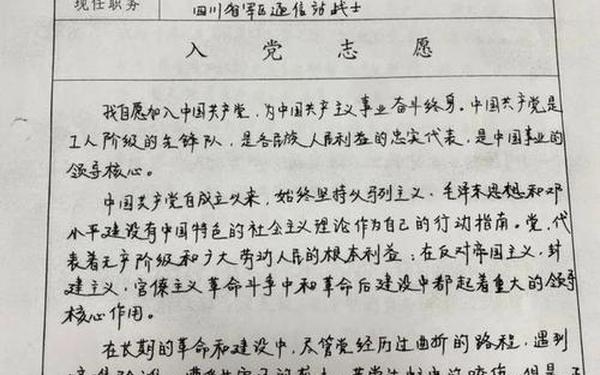 现任职务 四川省军区通信站战士
入党志愿
我自愿加入中国共产党,为中国共产主义事业奋斗终身。中国共产党是
工人阶级的先锋队,是各民族人民利益的忠实代表,是中国事业的
领导核心。
中国共产党自成立以来,始终坚持以马列主义、毛泽东思想和邓
小平建设有中国特色的社会主义理论作为自己的行动指南。党,代
表着无产阶级和广大劳动人民的根本利益;在反对帝国主义,封
建主义,官僚主义革命斗争中和革命后建设中都起着重大的领导
核心作用。
在长期的革命和建设中,尽管党经历过曲折的路程,遇到